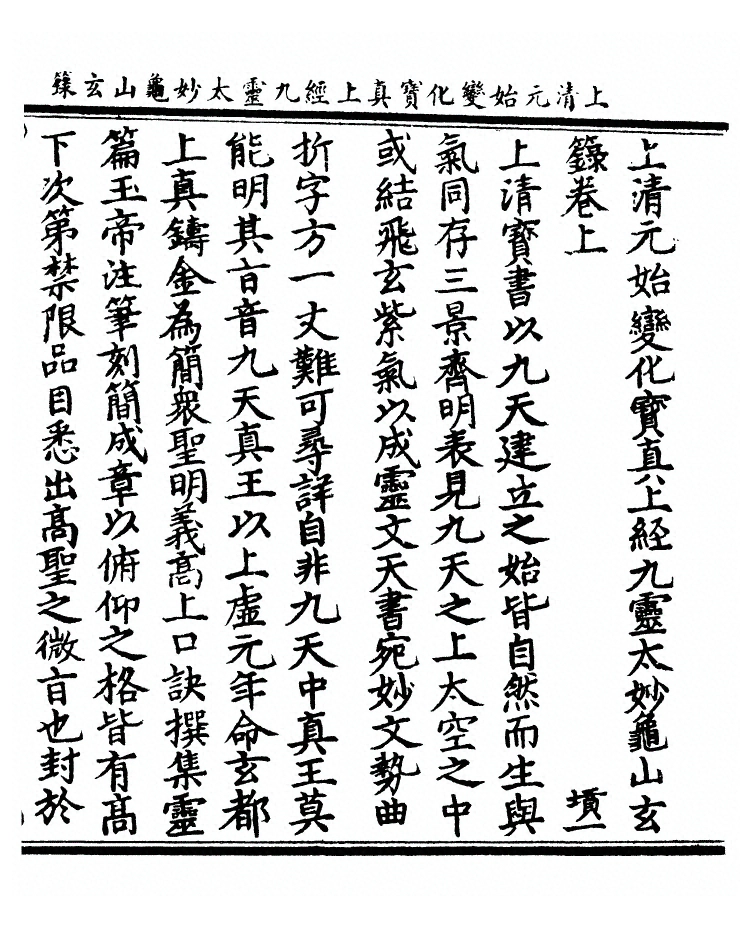 上清元始變化寶真上經九靈太妙龜山玄籙
上清元始變化寶真上經九靈太妙龜山玄
籙卷上　墳一
上清寶書以九天建立之始皆自然而生與
氣同存三景齊明表見九天之上太空之中
或結飛玄紫氣以成靈文天書宛妙文勢曲
折字方一丈難可尋詳自非九天中真王莫
能明其旨音九天真王以上虛元年命玄都
上真鑄金為簡眾聖明義高上口訣撰集靈
篇玉帝注筆刻簡成章以俯仰之格皆有高
下次第禁限品目悉出高聖之微旨也封於